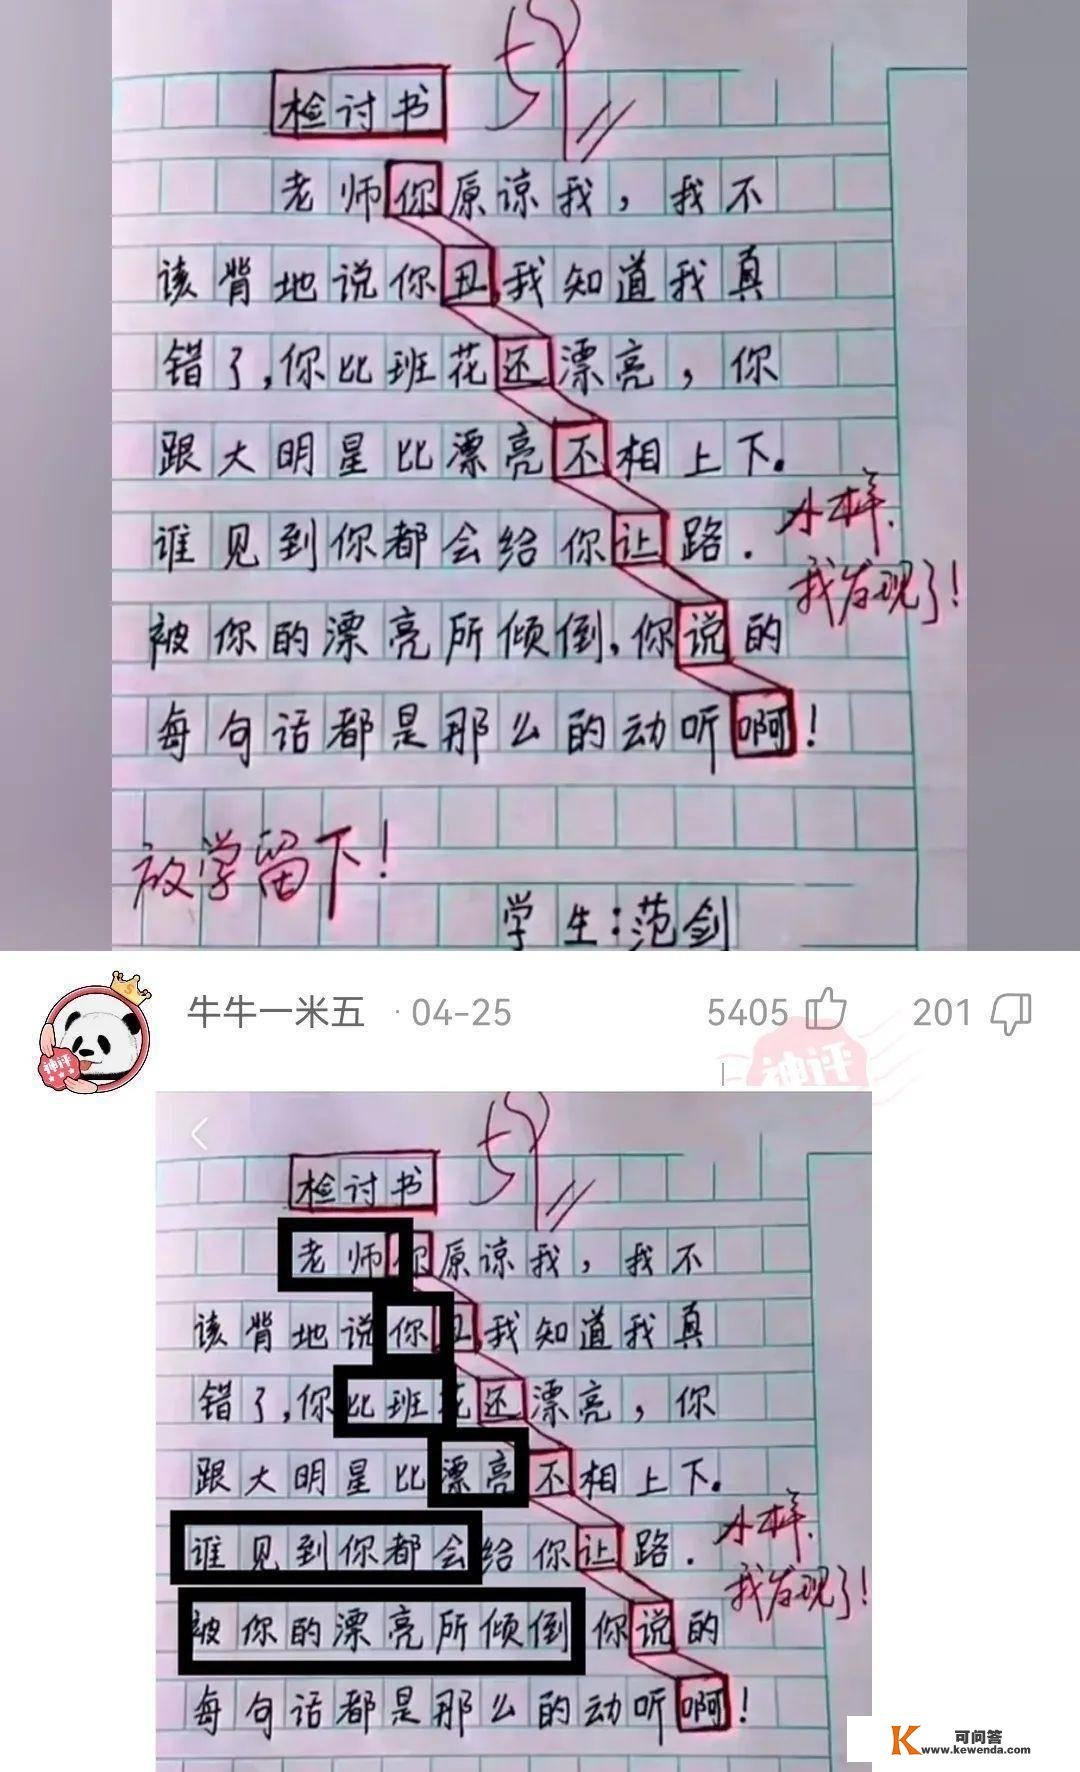 检讨书
老师你原谅我，我不
该背地说你丑,我知道我真
错了,你比班花还漂亮，你
跟大明星比漂亮不相上下.
谁见到你都会给你让路.
被你的漂亮所倾倒,你说的
每句话都是那么的动听啊!
小样.
我发现了!
放学留下!
学生:范剑
牛牛一米五 · 04-25 5405 201
神评
神评
检讨书
老师你原谅我，我不
该背地说你丑,我知道我真
错了,你比班花还漂亮，你
跟大明星比漂亮不相上下.
谁见到你都会给你让路.
被你的漂亮所倾倒 你说的
每句话都是那么的动听啊!
小样.
我发现了!
K 可问答
www.kewenda.com